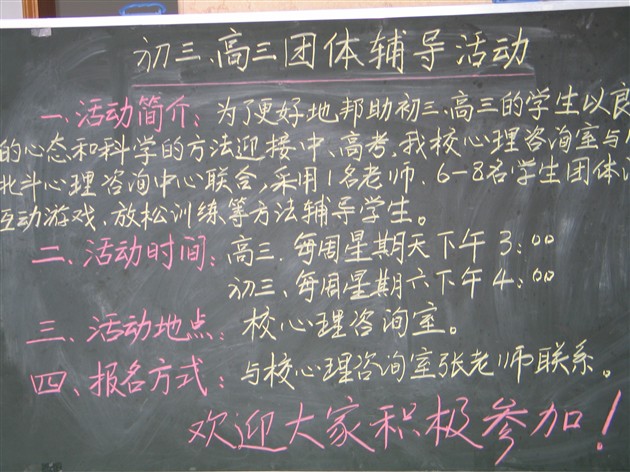 初三、高三团体辅导活动
一、活动简介：为了更好地帮助初三、高三的学生以良
的心态和科学的方法迎接中、高考，我校心理咨询室与
北斗心理咨询中心联合，采用1名老师、6-8名学生团体
互动游戏、放松训练等方法辅导学生。
二、活动时间：高三、每周星期天下午3：00
初三、每周星期六下午4：00
三、活动地点：校心理咨询室。
四、报名方式：与校心理咨询室张老师联系。
欢迎大家积极参加！